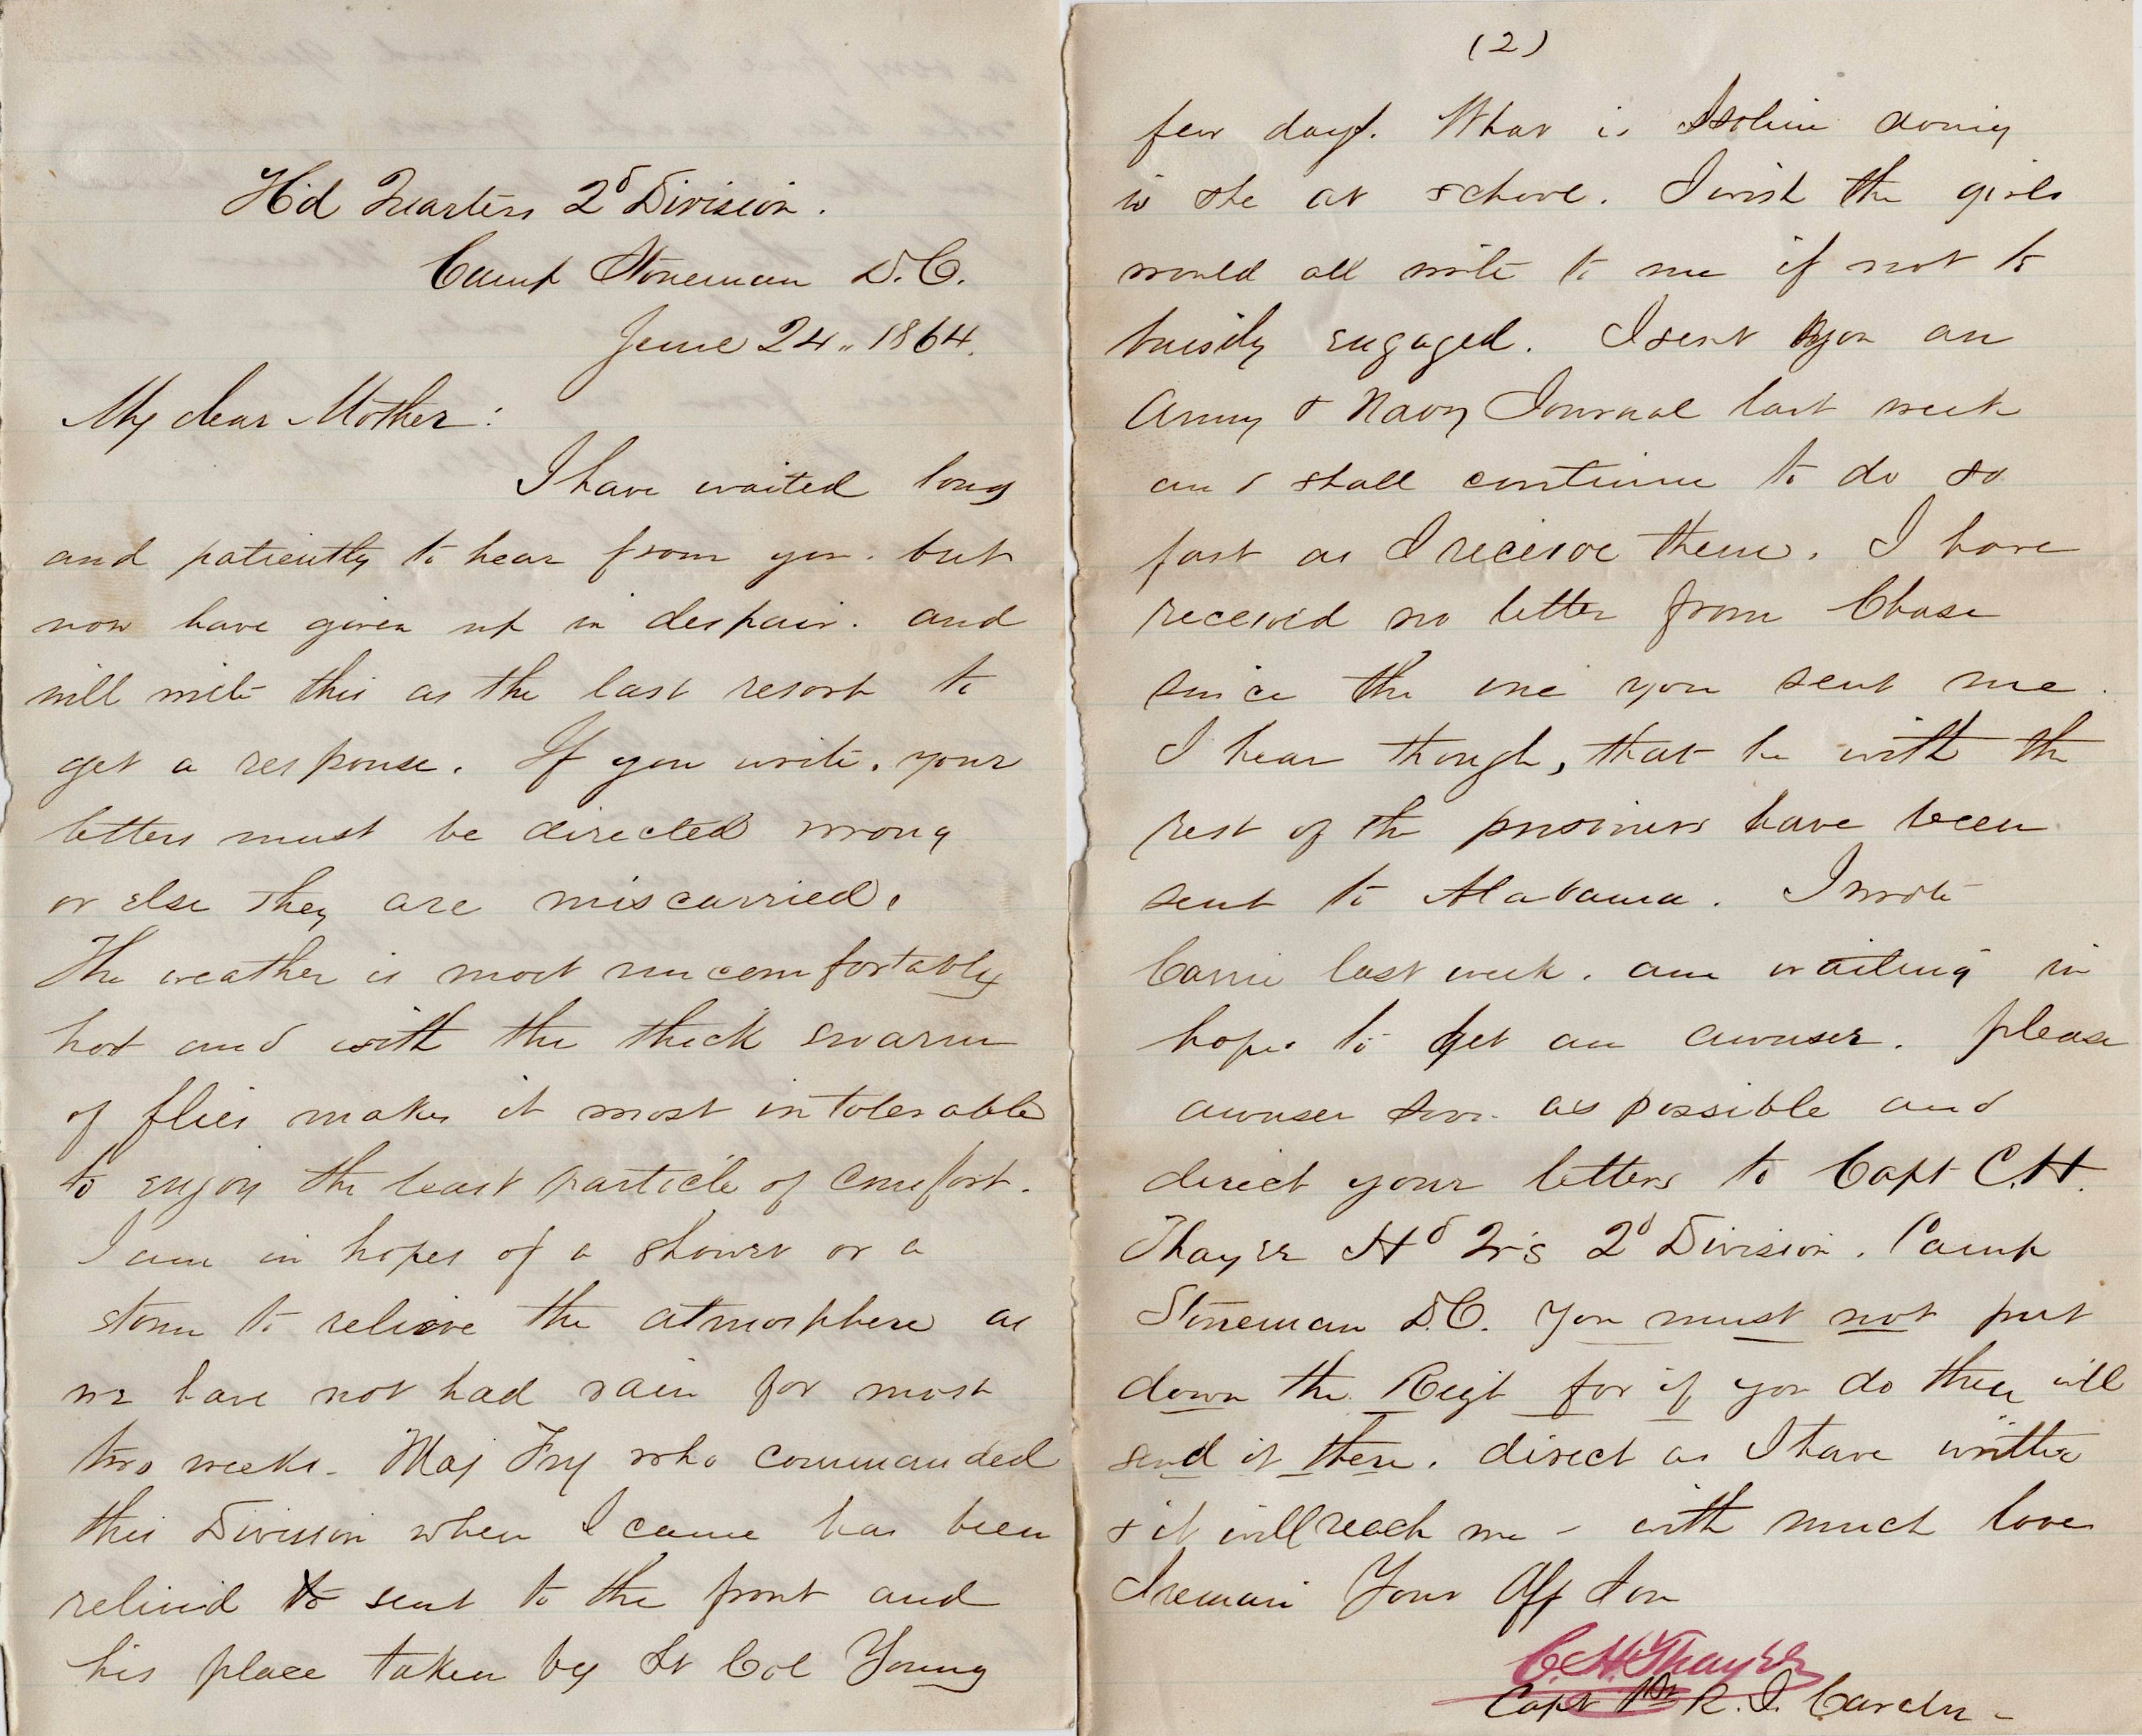 Hd Quarters 2d Division.
Camp Stoneman D.C.
June 24,, 1864.
My dear Mother:
I have waited long
and patiently to hear from you. but
now have given up in despair. and
will write this as the last resort to
get a response. If you write. your
letters must be directed wrong
or else they are miscarried.
The weather is most uncomfortably
hot and with the thick swarm
of flies makes it most intolerable
to enjoy the least particle of comfort.
I am in hopes of a shower or a
storm to relieve the atmosphere as
we have not had rain for most
two weeks. Maj Fry who commanded
this Division when I came has been
relieved & sent to the front and
his place taken by Lt Col Young
(2)
few days. What is doing
is she at school. I wish the girls
would all write to me if not to
busily engaged. I sent you an
Army & Navy Journal last week
and shall continue to do so
fast as I receive them. I have
received no letter from Chase
since the one you sent me.
I hear though, that he with the
rest of the prisoners have been
sent to Alabama. I wrote
Carrie last week. am waiting in
hopes to get an answer. please
answer soon as possible and
direct your letters to Capt C.H.
Thayer Hd Qr's 2d Division. Camp
Stoneman D.C. You must not put
down the Regt for if you do they will
send it there. direct as I have written
& it will reach me - with much love
I remain Your Aff Son
C. H. Thayer
Capt 1st R.I. Cavalry -